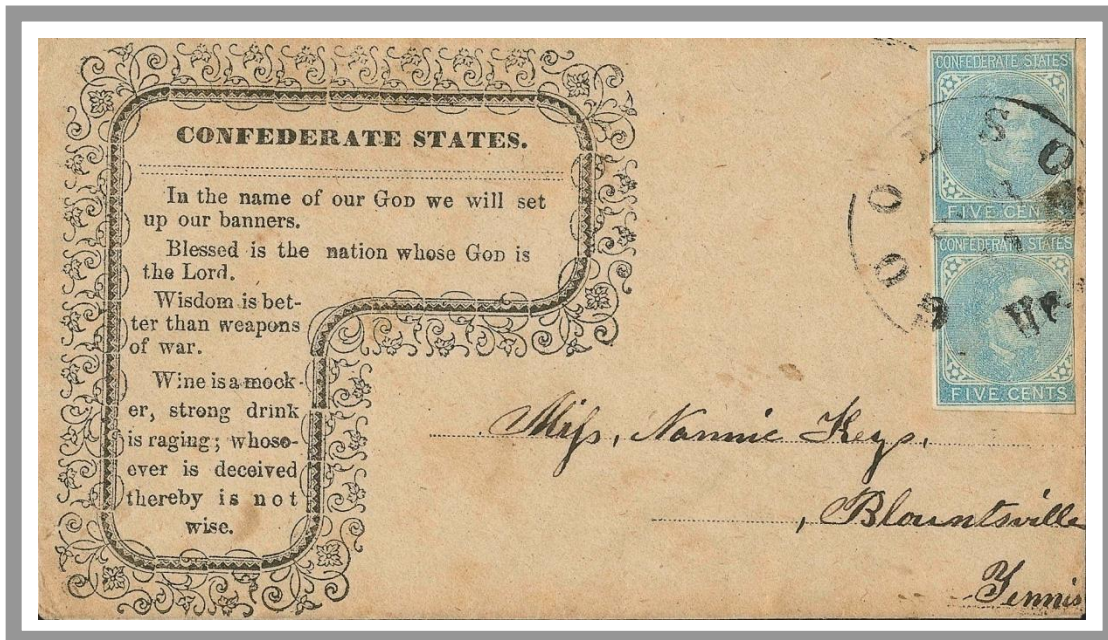 CONFEDERATE STATES.
In the name of our GOD we will set
up our banners.
Blessed is the nation whose GOD is
the Lord.
Wisdom is bet-
ter than weapons
of war.
Wine is a mock-
er, strong drink
is raging; whoso-
ever is deceived
thereby is not
wise.
CONFEDERATE STATES
FIVE CENTS
CONFEDERATE STATES
FIVE CENTS
GOODSO
Miss, Nannie Keys,
, Blountsville
Tennis